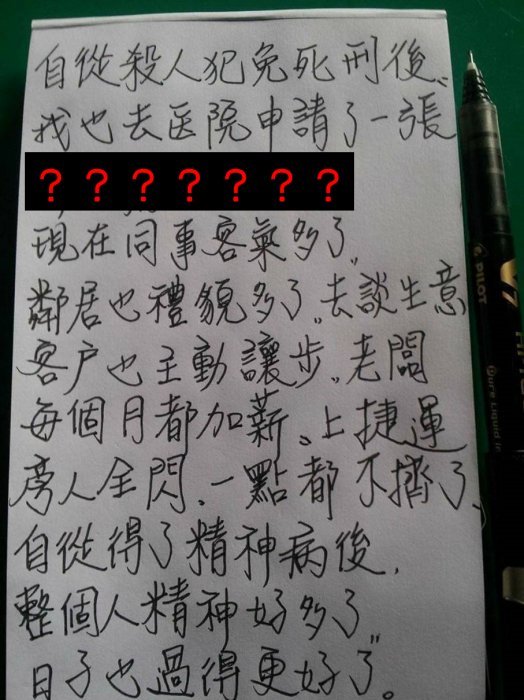 自從殺人犯免死刑後、
我也去医院申請了一張
???????
現在同事客氣多了、
鄰居也禮貌多了、去談生意
客户也主動讓步、老闆
每個月都加薪、上捷運
旁人全閃、一點都不擠了、
自從得了精神病後,
整個人精神好多了、
日子也過得更好了。
PILOT
V7
Pure Liquid In